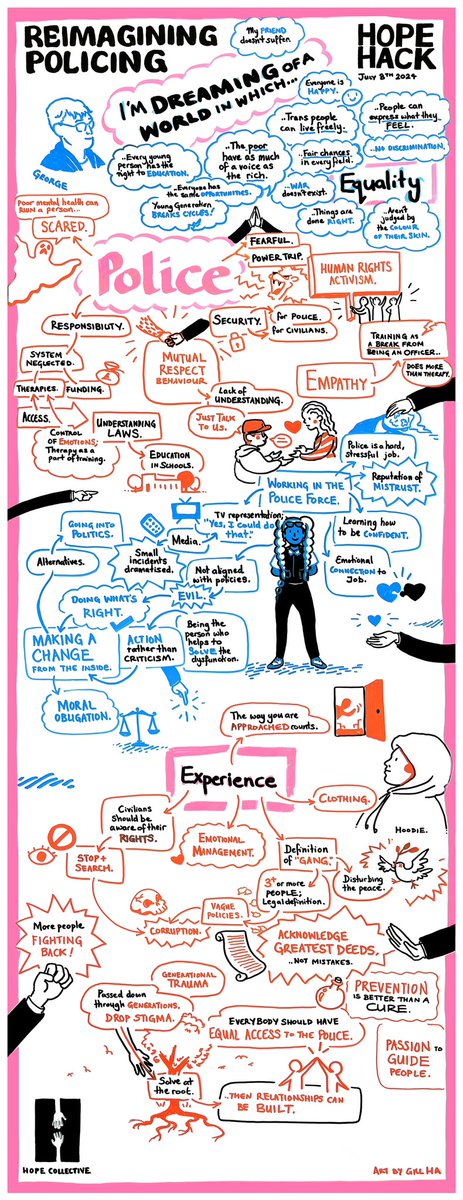 REIMAGINING
POLICING
My FRIEND
doesn't suffer.
HOPE
HACK
JULY 8TH 2024
I'M DREAMING OF A
WORLD IN WHICH...
Everyone is
HAPPY.
GEORGE
..Every young
person has the
right to EDUCATION.
..The poor
have as much
of a voice as
the rich.
..Trans people
can live freely.
..Fair chances
in every field.
..People can
express what they
FEEL.
..NO DISCRIMINATION.
..Everyone has
the same OPPORTUNITIES.
Young Generation
BREAKS CYCLES!
..WAR
doesn't exist.
Equality
..Things are
done RIGHT.
..Aren't
judged by
the COLOUR
OF THEIR SKIN.
Poor mental health can
RUIN a person...
SCARED.
Police
FEARFUL.
POWER TRIP.
HUMAN RIGHTS
ACTIVISM.
RESPONSIBILITY.
SECURITY.
for POLICE.
for CIVILIANS.
SYSTEM
NEGLECTED.
MUTUAL
RESPECT
BEHAVIOUR
TRAINING AS
A BREAK FROM
BEING AN OFFICER..
DOES MORE
THAN THERAPY.
EMPATHY
THERAPIES.
FUNDING.
Lack of
UNDERSTANDING.
ACCESS.
UNDERSTANDING
LAWS.
JUST TALK
TO US.
CONTROL
OF EMOTIONS;
Therapy as a
part of training.
EDUCATION
IN SCHOOLS.
Police is a hard,
stressful job.
WORKING IN THE
POLICE FORCE.
Reputation of
MISTRUST.
GOING INTO
POLITICS.
TV representation;
"Yes, I could do
that."
Media.
Learning how
to be CONFIDENT.
Alternatives.
Small
incidents
dramatised.
Not aligned
with policies.
Emotional
CONNECTION to
Job.
EVIL.
DOING WHAT'S
RIGHT.
MAKING A
CHANGE
FROM THE INSIDE.
ACTION
rather than
CRITICISM.
Being the
person who
helps to
SOLVE the
dysfunction.
MORAL
OBLIGATION.
The way you are
APPROACHED counts.
Experience
CLOTHING.
Civilians
should be
aware of their
RIGHTS.
EMOTIONAL
MANAGEMENT.
Definition
of "GANG."
HOODIE.
STOP +
SEARCH.
3+ or more
PEOPLE;
Legal definition.
Disturbing
the peace.
VAGUE
POLICIES.
CORRUPTION.
More people
FIGHTING
BACK!
ACKNOWLEDGE
GREATEST DEEDS.
..NOT MISTAKES.
GENERATIONAL
TRAUMA
PREVENTION
IS BETTER THAN A
CURE.
Passed down
through GENERATIONS.
DROP STIGMA.
EVERYBODY SHOULD HAVE
EQUAL ACCESS TO THE POLICE.
PASSION to
GUIDE
PEOPLE.
Solve at
the root.
..THEN RELATIONSHIPS CAN
BE BUILT.
HOPE COLLECTIVE
ART BY GILL HA